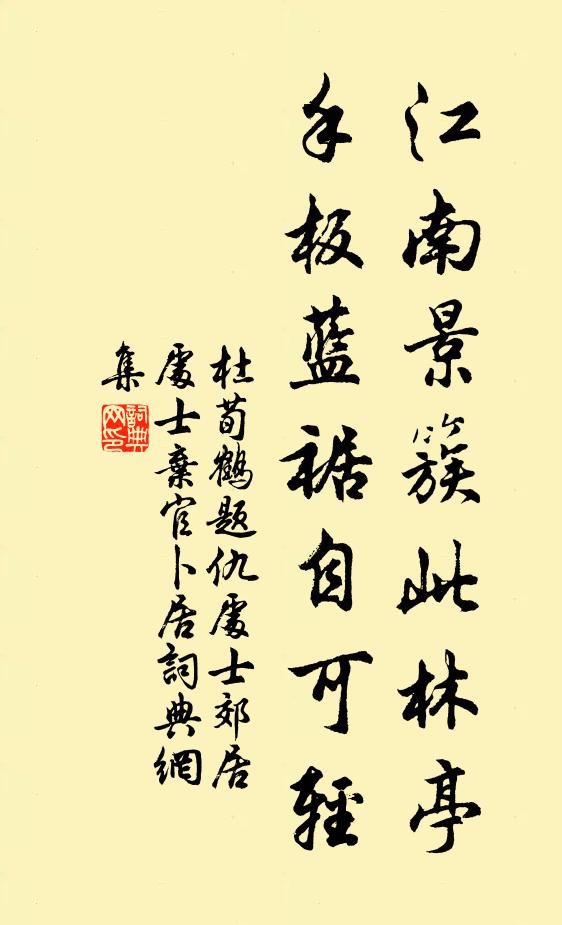 江南景簇此林亭
手板藍裾自可輕
杜荀鶴題仇處士郊居
處士棄官卜居詞典網
集
詞典网印